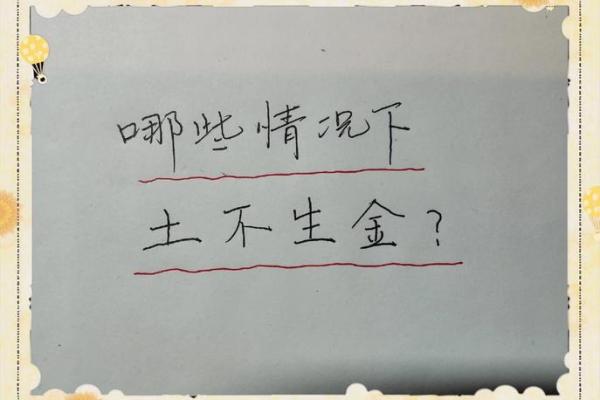 哪些情况下
土不生金?